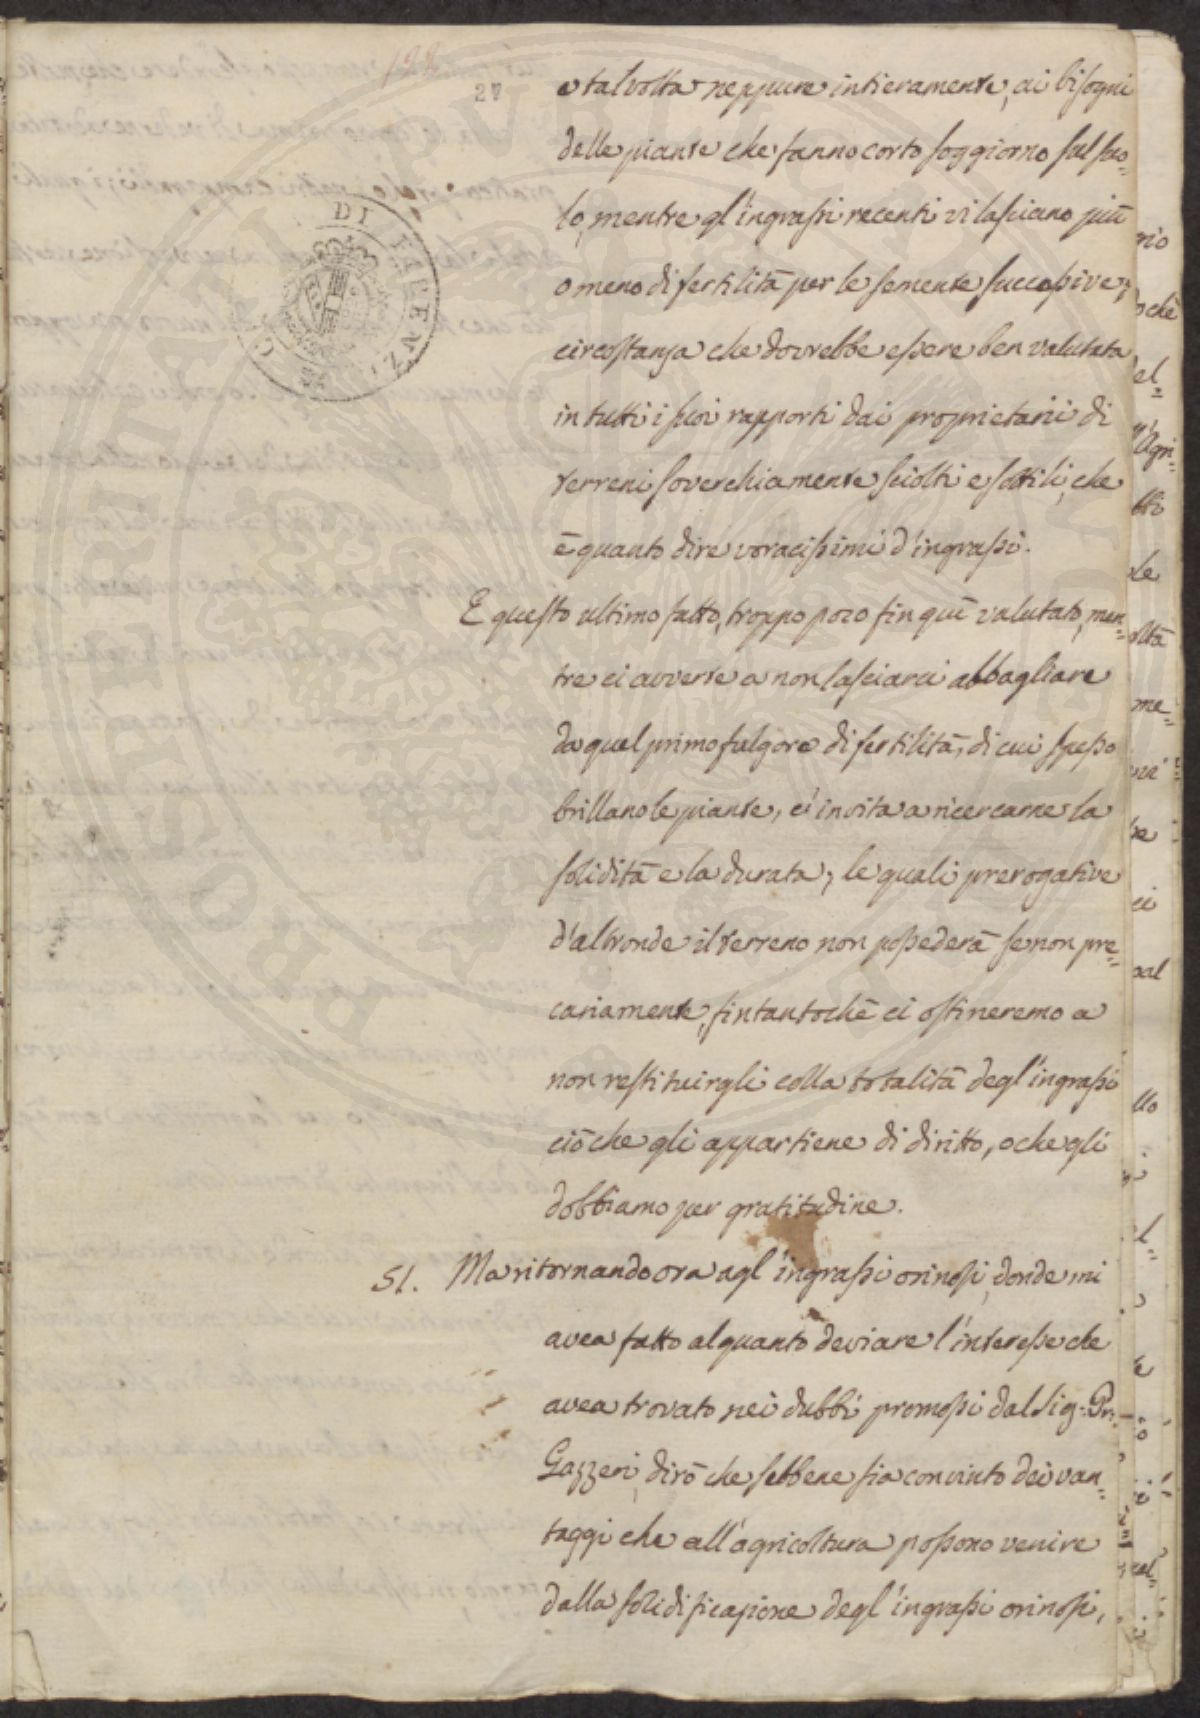 27
e talvolta neppure intieramente, ai bisogni
delle piante che fanno corto soggiorno sul suo=
lo, mentre gl'ingrassi recenti vi lasciano più
o meno di fertilità per le semente successive;
circostanza che dovrebbe essere ben valutata
in tutti i suoi rapporti dai proprietarii di
terreni soverchiamente sciolti e sottili, che
è quanto dire voracissimi d'ingrassi.
E questo ultimo fatto, troppo poco fin quì valutato, men=
tre ci avverte a non lasciarci abbagliare
da quel primo fulgore di fertilità, di cui spesso
brillano le piante, c'invita a ricercarne la
solidità e la durata; le quali prerogative
d'altronde il terreno non possederà se non pre=
cariamente, fintantochè ci ostineremo a
non restituirgli colla totalità degl'ingrassi
ciò che gli appartiene di diritto, o che gli
dobbiamo per gratitudine.
51. Ma ritornando ora agl'ingrassi orinosi, donde mi
avea fatto alquanto deviare l'interesse che
avea trovato nei dubbi promossi dal Sig: Pr:
Gazzeri, dirò che sebbene sia convinto dei van=
taggi che all'agricoltura possono venire
dalla solidificazione degl'ingrassi orinosi,
DI FIRENZE